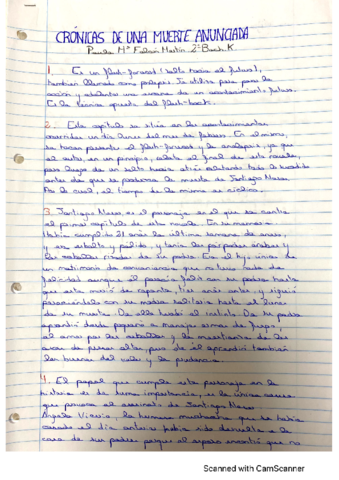 CRÓNICAS DE UNA MUERTE ANUNCIADA
Paula Mª 2º Bach K.
1. Es un flash-forward (salto hacia el futuro),
también llamado como prolepsis. Se utiliza para parar la
acción y adelantar una escena de un acontecimiento futuro.
Es la técnica opuesta del flash-back.
2. Este capítulo se sitúa en los acontecimientos
ocurridos un día lunes del mes de febrero. En el mismo,
se hacen presente el flash-forward y la analepsis, ya que
el autor, en un principio, adelanta el final de esta novela,
para luego dar un salto hacia atrás relatando todo lo ocurrido
antes de que se produzca la muerte de Santiago Nasar.
Por lo cual, el tiempo de la misma es cíclico.
3. Santiago Nasar, es el personaje en el que se centra
el primer capítulo de esta novela. En su memoria
Había cumplido 21 años la última semana de enero,
y era esbelto y pálido, y tenía los párpados árabes y
los cabellos rizados de su padre. Era el hijo único de
un matrimonio de conveniencia que no tuvo nada de
felicidad aunque él parecía feliz con su padre hasta
que este murió de repente, tres años antes, y siguió
pareciéndolo con su madre solitaria hasta el lunes
de su muerte. De ella heredó el instinto. De su padre
aprendió desde pequeño a manejar armas de fuego,
el amor por los caballos y la maestranza de las
aves de presas altas, pero de él aprendió también
las buenas del valor y la prudencia.
4. El papel que cumple este personaje en la
historia es de suma importancia, es la única
que provoca el asesinato de Santiago Nasar.
Ángela Vicario, la hermosa muchacha que se había
casado el día anterior había sido devuelta a la
casa de sus padres porque el esposo encontró que no
Scanned with CamScanner